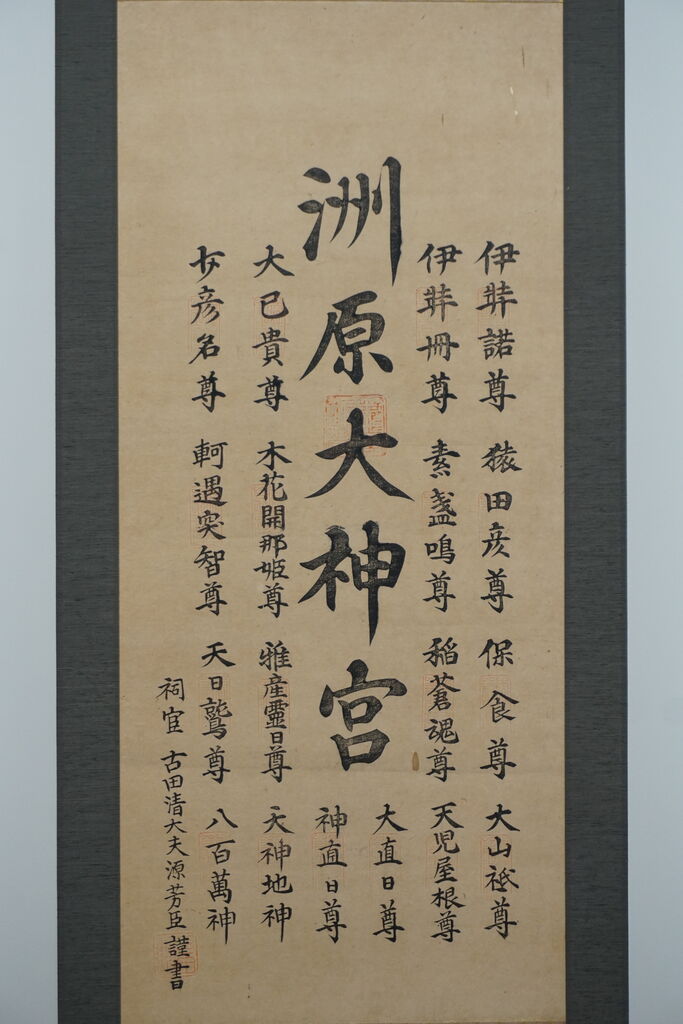 洲原大神宮
伊弉諾尊 猿田彦尊 保食尊 大山祗尊
伊弉冊尊 素盞鳴尊 稲蒼魂尊 天児屋根尊
大直日尊
神直日尊
大已貴尊 木花開那姫尊 雅産霊日尊 天神地神
少彦名尊 軻遇突智尊 天日鷲尊 八百萬神
祠官 古田清大夫源芳臣謹書